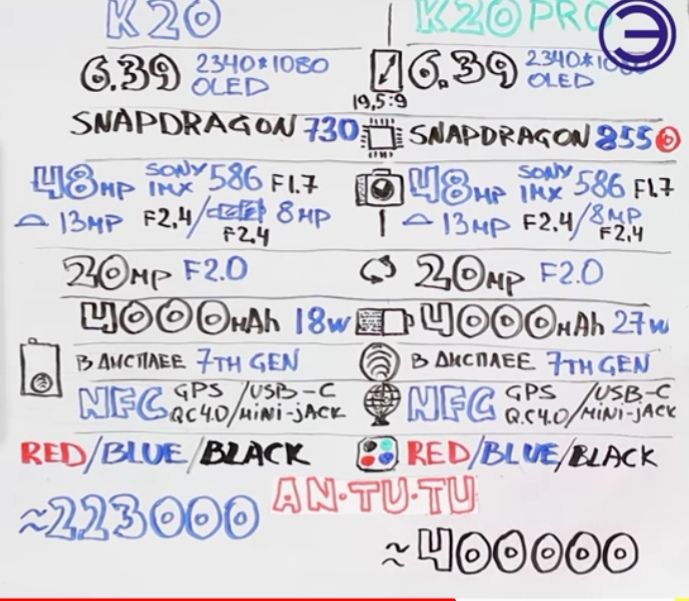 K20 K20 PRO Э
6.39 2340*1080 6.39 2340*1080
OLED OLED
19,5:9
SNAPDRAGON 730 SNAPDRAGON 855
48MP SONY IMX 586 F1.7 48MP SONY IMX 586 F1.7
13MP F2,4/ 8MP F2,4 13MP F2,4/8MP F2,4
20MP F2.0 20MP F2.0
4000mAh 18W 4000mAh 27W
В ДИСПЛЕЕ 7TH GEN В ДИСПЛЕЕ 7TH GEN
NFC GPS/USB-C NFC GPS/USB-C
QC4.0/MiNi-jACK Q.C4.0/MiNi-jACK
RED/BLUE/BLACK RED/BLUE/BLACK
AN·TU·TU
≈223000
≈400000